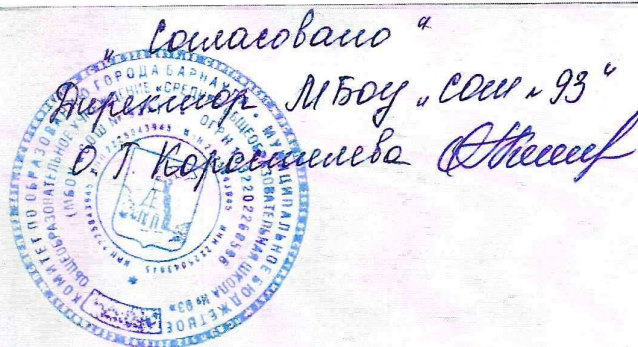 „Согласовано“
Директор МБОУ „СОШ №93“
О. Г Коростелева
КОМИТЕТ ПО ОБРАЗОВАНИЮ ГОРОДА БАРНАУЛА МУНИЦИПАЛЬНОЕ БЮДЖЕТНОЕ
ОБЩЕОБРАЗОВАТЕЛЬНОЕ УЧРЕЖДЕНИЕ «СРЕДНЯЯ ОБЩЕОБРАЗОВАТЕЛЬНАЯ ШКОЛА № 93»